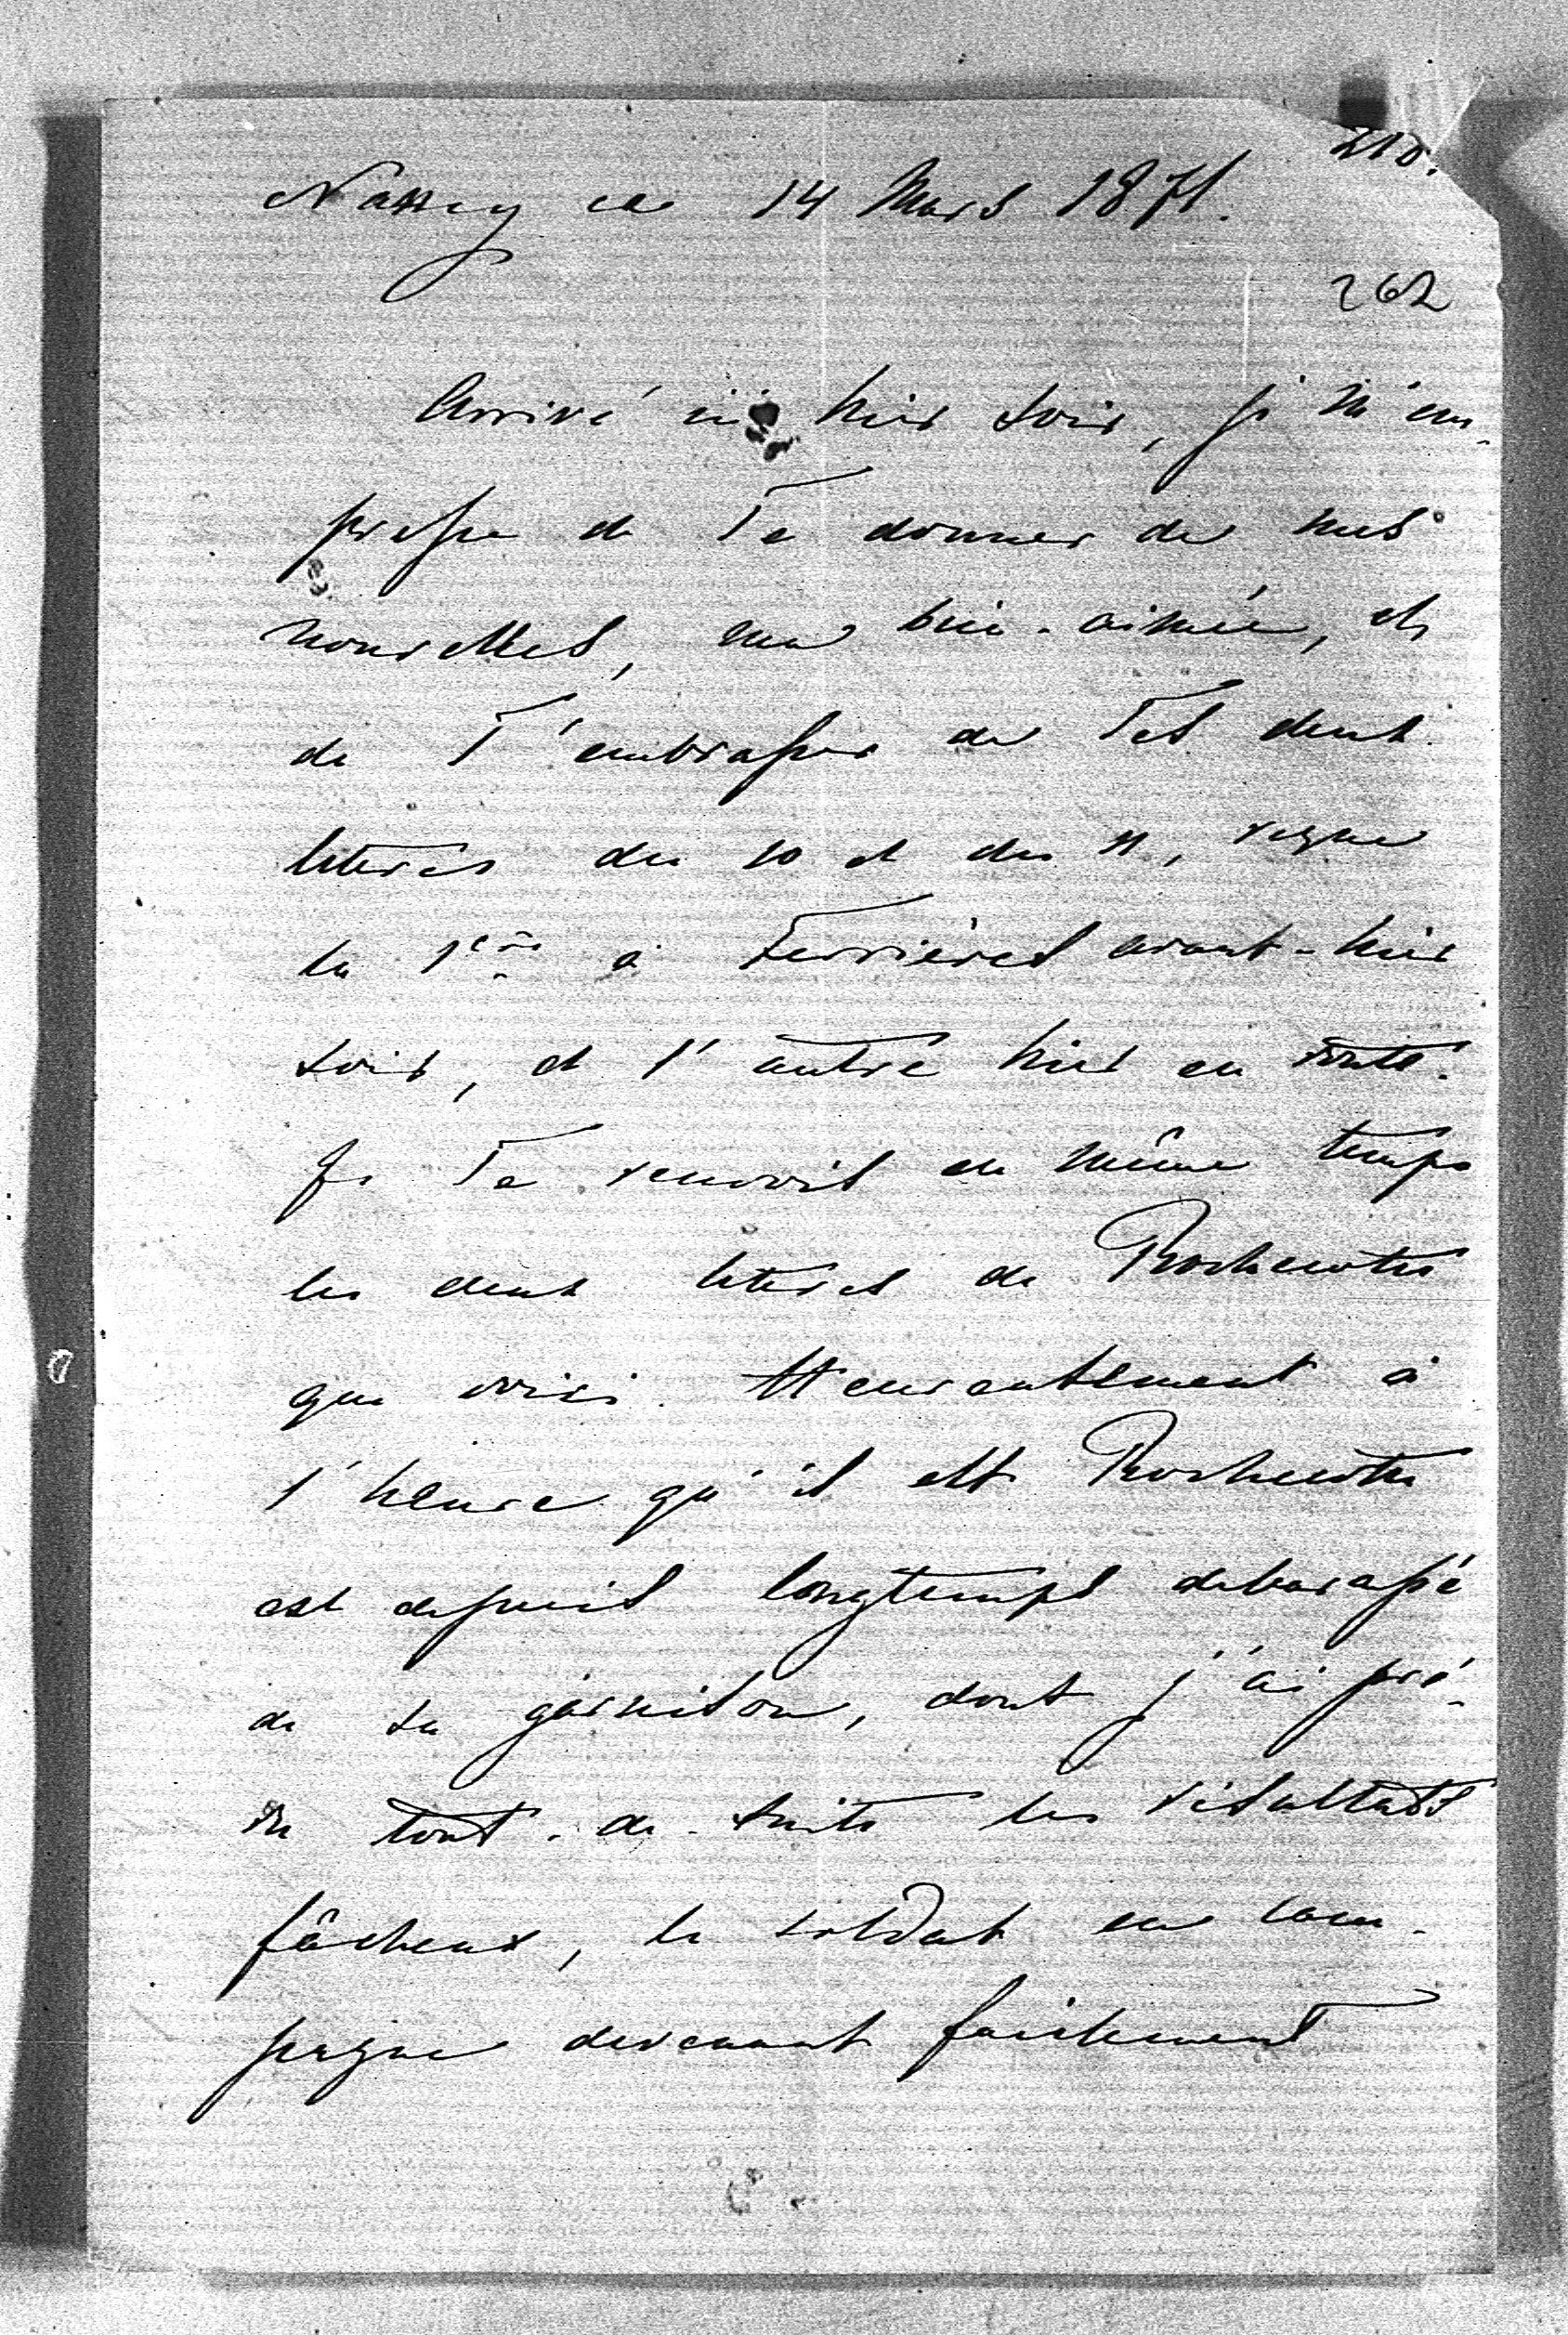 210.
Nancy ce 14 Mars 1871.
262
Arrivé ici hier soir, je m'em-
presse de Te donner de mes
nouvelles, ma bien-aimée, et
de T'embrasser de Tes deux
lettres du 10 et du 11, reçue
la 1ère à Ferrières avant-hier
soir, et l'autre hier en route.
Je Te renvois en même temps
les deux lettres de Rochecotte
que voici. Heureusement à
l'heure qu'il est Rochecotte
est depuis longtemps debarassé
de sa garnison, dont j'ai pré-
vu tout-de-suite les résultats
fâcheux, le soldat en cam-
pagne devenant facilement